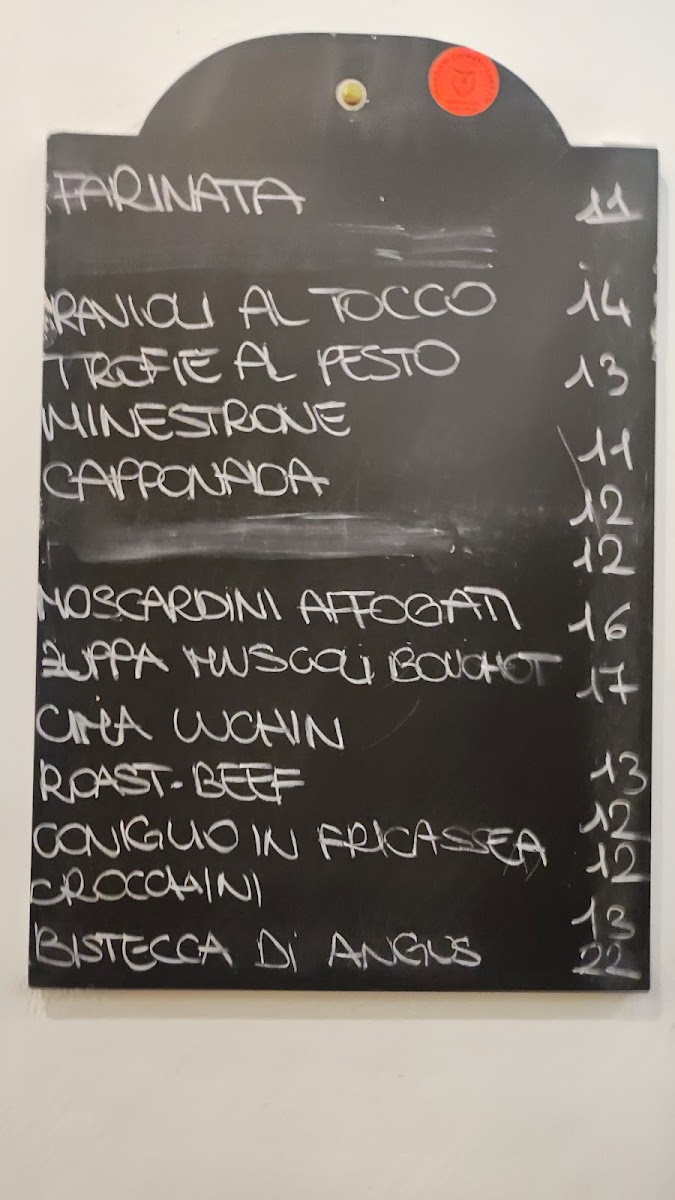 FARINATA 11
RAVIOLI AL TOCCO 14
TROFIE AL PESTO 13
MINESTRONE 11
CAPPONADA 12
12
MOSCARDINI AFFOGATI 16
ZUPPA MUSCOLI BOUCHOT 17
CIMA UCHIN
ROAST-BEEF 13
CONIGLIO IN FRICASSEA 12
12
CROCCHINI 13
BISTECCA DI ANGUS 22